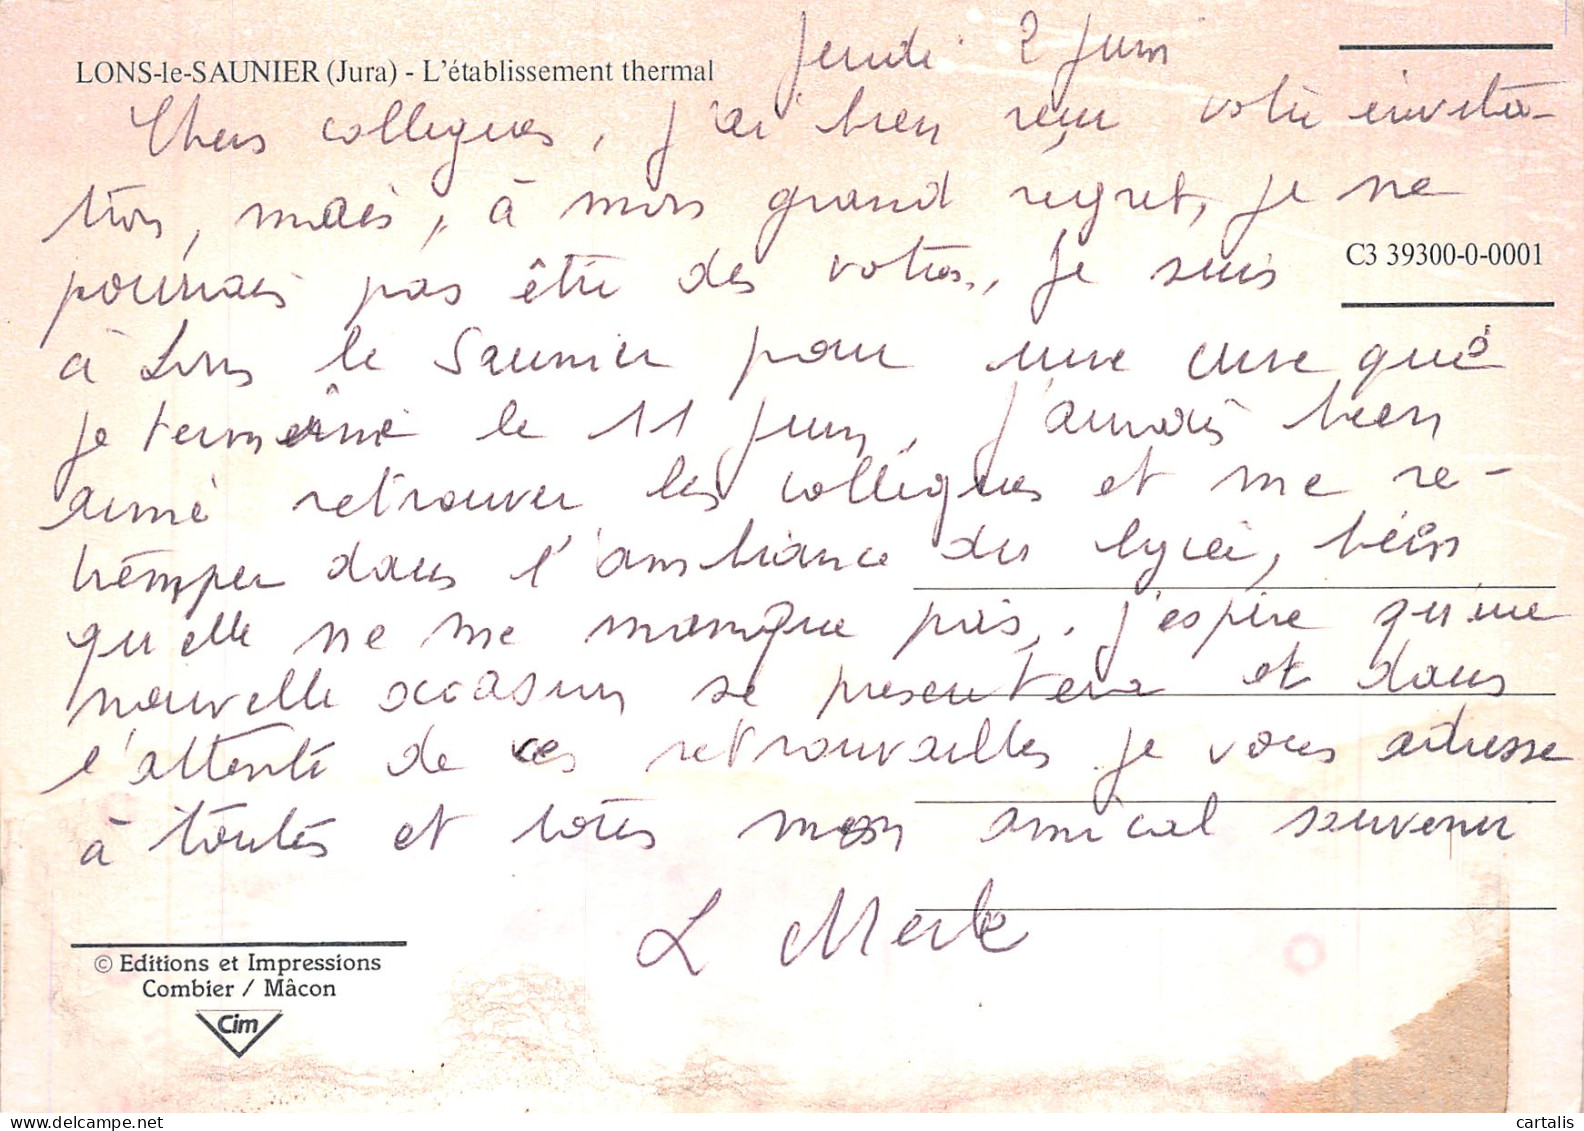 jeudi 2 juin
LONS-le-SAUNIER (Jura) - L'établissement thermal
Chers collègues, j'ai bien reçu votre invita-
tion, mais, à mon grand regret, je ne
C3 39300-0-0001
pourrais pas être des votres, je suis
à Lons le Saunier pour une cure que
je termine le 11 juin, j'aurais bien
aimé retrouver les collègues et me re-
tremper dans l'ambiance du lycée, bien
qu'elle ne me manque pas, j'espère qu'une
nouvelle occasion se présentera et dans
l'attente de ces retrouvailles je vous adresse
à toutes et tous mon amical souvenir
L Merle
© Editions et Impressions
Combier / Mâcon
Cim
cartalis